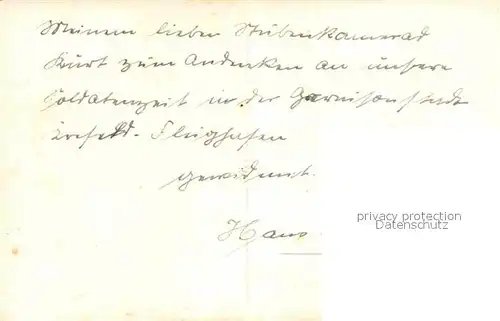 Meinem lieben Stubenkamerad
Kurt zum Andenken an unsere
Soldatenzeit in der Garnisonstadt
Krefeld-Flughafen
gewidmet.
Hans
privacy protection
DARABANTH.COM